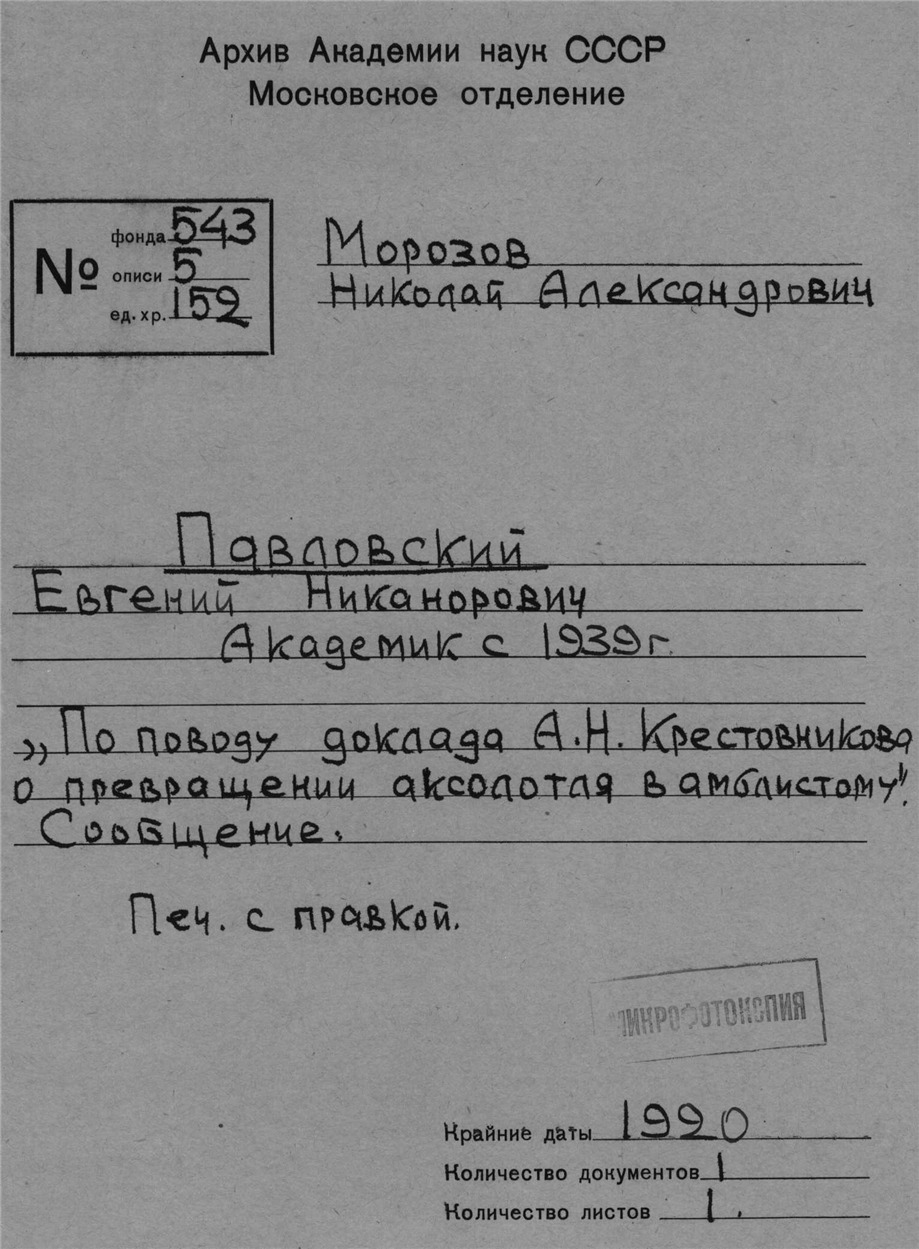 Архив Академии наук СССР
Московское отделение
№
фонда 543
описи 5
ед. хр. 159
Морозов
Николай Александрович
Павловский
Евгений Никанорович
Академик с 1939 г.
„По поводу доклада А.Н. Крестовникова
о превращении аксолотля в амблистому".
Сообщение.
Печ. с правкой.
МИКРОФОТОКОПИЯ
Крайние даты 1920
Количество документов 1
Количество листов 1.